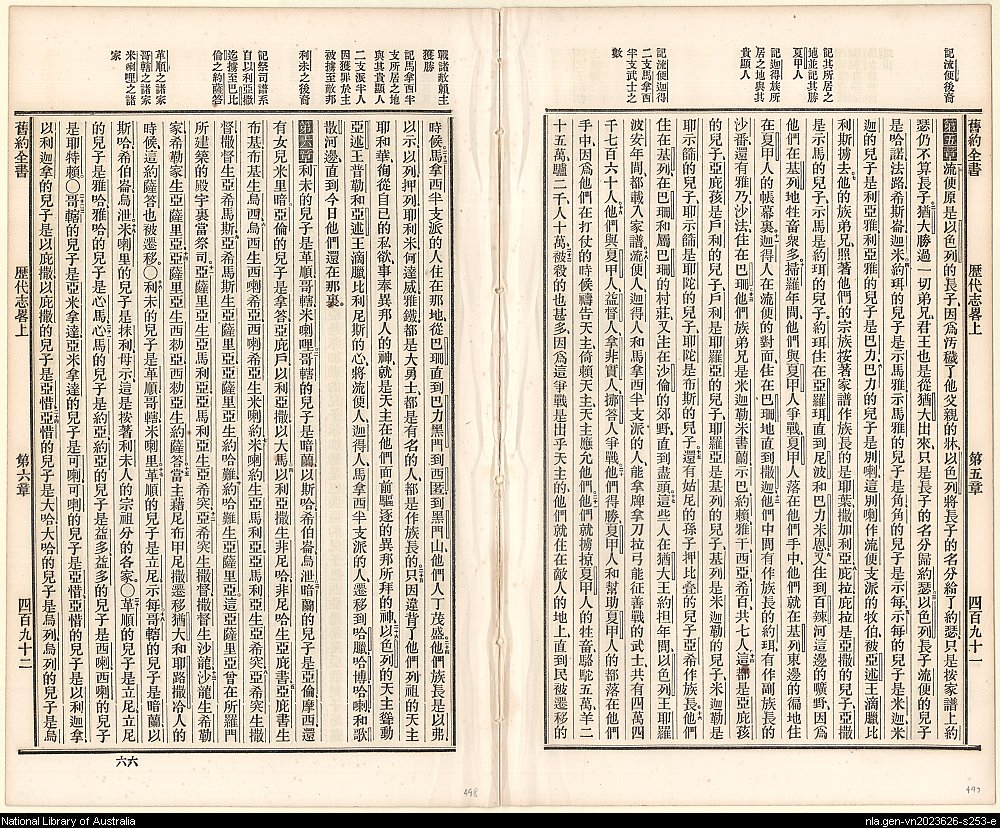 記流便後裔
記其所居之
地並記其勝
夏甲人
記迦得族所
居之地與其
貴顯人
記流便迦得
二支馬拿西
半支武士之
數
舊約全書
歷代志畧上
第五章
四百九十一
第五章流便原是以色列的長子因爲汚穢了他父親的牀以色列將長子的名分給了約瑟只是按家譜上約
瑟仍不算長子猶大勝過一切弟兄君王也是從猶大出來只是長子的名分歸約瑟以色列長子流便的兒子
是哈諾法路希斯崙迦米約珥的兒子是示馬雅示馬雅的兒子是角角的兒子是示每示每的兒子是米迦米
迦的兒子是利亞雅利亞雅的兒子是巴力巴力的兒子是別喇這別喇作流便支派的牧伯被亞述王滴臘比
利斯擄去他的族弟兄照著他們的宗族按著家譜作族長的是耶葉撒加利亞庇拉庇拉是亞撒的兒子亞撒
是示馬的兒子示馬是約珥的兒子約珥住在亞羅珥直到尼波和巴力米恩又住到百辣河這邊的曠野因爲
他們在基列地牲畜衆多掃羅年間他們與夏甲人爭戰夏甲人落在他們手中他們就在基列東邊的徧地住
在夏甲人的帳幕裏迦得人在流便的對面住在巴珊地直到撒迦他們中間有作族長的約珥有作副族長的
沙番還有雅乃沙法住在巴珊他們族弟兄是米迦勒米書蘭示巴約賴雅干西亞希百共七人這都是亞庇孩
的兒子亞庇孩是戶利的兒子戶利是耶羅亞的兒子耶羅亞是基列的兒子基列是米迦勒的兒子米迦勒是
耶示篩的兒子耶示篩是耶陀的兒子耶陀是布斯的兒子還有姑尼的孫子押比叠的兒子亞希作族長他們
住在基列在巴珊和屬巴珊的村莊又住在沙倫的郊野直到盡頭這些人在猶大王約坦年間以色列王耶羅
波安年間都載入家譜流便人迦得人和馬拿西半支派的人能拿牌拿刀拉弓能征善戰的武士共有四萬四
千七百六十人他們與夏甲人益督人拿非實人挪答人爭戰他們得勝夏甲人和幫助夏甲人的都落在他們
手中因爲他們在打仗的時候禱告天主倚賴天主天主應允他們他們就擄掠夏甲人的牲畜駱駝五萬羊二
十五萬驢二千人十萬被殺的也甚多因爲這爭戰是出乎天主的他們就住在敵人的地上直到民被遷移的
戰諸敵賴主
獲勝
記馬拿西半
支所居之地
與其貴顯人
二支派半人
因獲罪於主
被擄至敵邦
利未之後裔
記祭司譜系
自以利亞撒
迄擄至巴比
倫之約薩答
革順之諸家
哥轄之諸家
米喇哩之諸
家
時候馬拿西半支派的人住在那地從巴珊直到巴力黑門到西匿到黑門山他們人丁茂盛他們族長是以弗
以示以列押列耶利米何達威雅鐵都是大勇士都是有名的人都是作族長的只因違背了他們列祖的天主
耶和華徇從自己的私欲事奉異邦人的神就是天主在他們面前驅逐的異邦所拜的神以色列的天主聳動
亞述王普勒和亞述王滴臘比利尼斯的心將流便人迦得人馬拿西半支派的人遷移到哈臘哈博哈喇和歌
散河邊直到今日他們還在那裏
第六章利未的兒子是革順哥轄米喇哩哥轄的兒子是暗蘭以斯哈希伯崙烏泄暗蘭的兒子是亞倫摩西還
有女兒米里暗亞倫的兒子是拿答亞庇戶以利亞撒以大馬以利亞撒生非尼哈非尼哈生亞庇書亞庇書生
布基布基生烏西烏西生西喇希西喇希亞生米喇約米喇約生亞馬利亞亞馬利亞生亞希突亞希突生撒
督撒督生亞希馬斯亞希馬斯生亞薩里亞亞薩里亞生約哈難約哈難生亞薩里亞這亞薩里亞曾在所羅門
所建築的殿宇裏當祭司亞薩里亞生亞馬利亞亞馬利亞生亞希突亞希突生撒督撒督生沙龍沙龍生希勒
家希勒家生亞薩里亞亞薩里亞生西勑亞西勑亞生約薩答當主藉尼布甲尼撒遷移猶大和耶路撒冷人的
時候這約薩答也被遷移〇利未的兒子是革順哥轄米喇里革順的兒子是立尼示每哥轄的兒子是暗蘭以
斯哈希伯崙烏泄米喇里的兒子是抹利母示這是按著利未人的宗祖分的各家〇革順的兒子是立尼立尼
的兒子是雅哈雅哈的兒子是心馬心馬的兒子是約亞約亞的兒子是益多益多的兒子是西喇西喇的兒子
是耶特賴〇哥轄的兒子是亞米拿達亞米拿達的兒子是可喇可喇的兒子是亞惜亞惜的兒子是以利迦拿
以利迦拿的兒子是以庇撒以庇撒的兒子是亞惜亞惜的兒子是大哈大哈的兒子是烏列烏列的兒子是烏
舊約全書
歷代志畧上
第六章
四百九十二
六六
498
497
National Library of Australia
nla.gen-vn2023626-s253-e